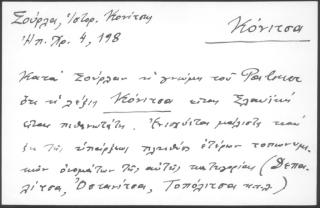 Σούρλα, Ἱστορ. Κονίτσης
Ἠπ. Χρ. 4, 198
Κόνιτσα
Κατὰ Σούρλαν ἡ γνώμη τοῦ
ὅτι ἡ λέξις Κόνιτσα εἶναι Σλαυϊκὴ
εἶναι πιθανωτάτη. Ἐνισχύεται μάλιστα
ἐκ τῆς ὑπάρξεως πλήθους ἑτέρων τοπωνυμι-
κῶν ὀνομάτων τῆς αὐτῆς κατηγορίας (Δεπα-
λίτσα, Ὀστανίτσα, Τοπόλιτσα κ.π.λ.)